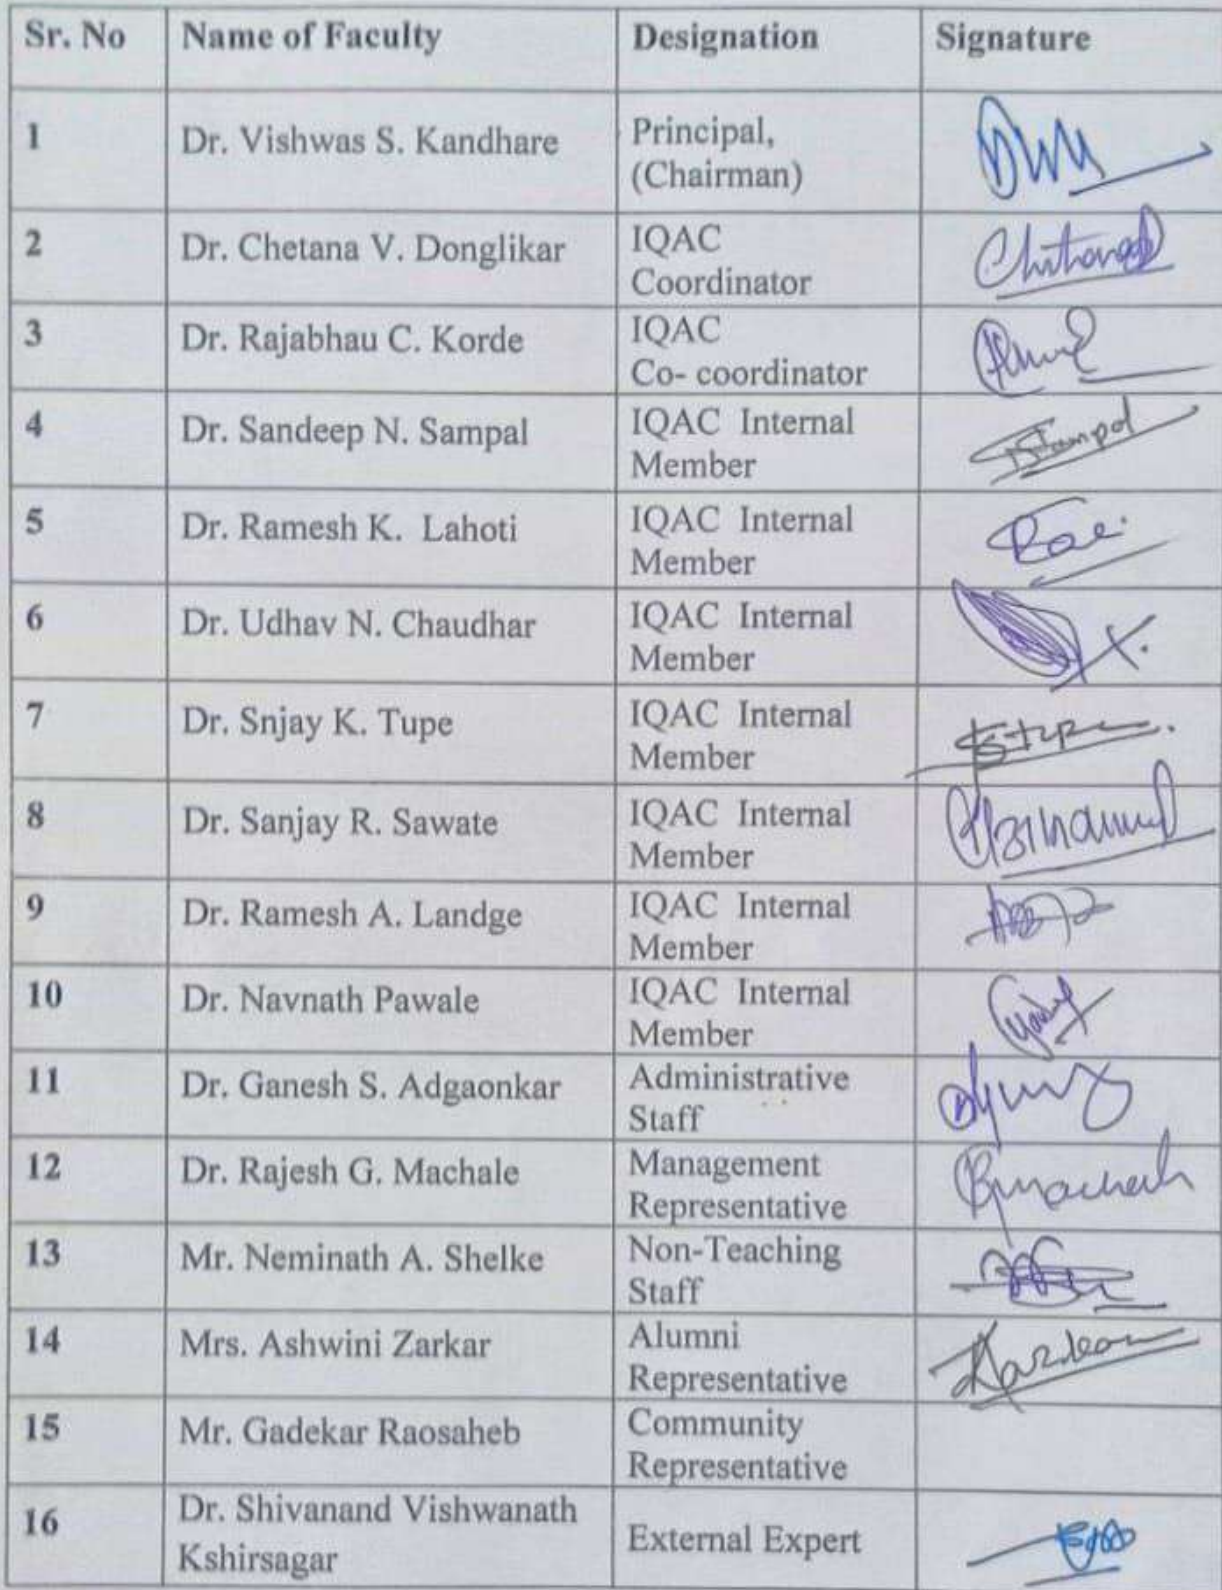 Sr. No Name of Faculty Designation Signature
1 Dr. Vishwas S. Kandhare Principal,
(Chairman)
2 Dr. Chetana V. Donglikar IQAC
Coordinator
3 Dr. Rajabhau C. Korde IQAC
Co- coordinator
4 Dr. Sandeep N. Sampal IQAC Internal
Member
5 Dr. Ramesh K. Lahoti IQAC Internal
Member
6 Dr. Udhav N. Chaudhar IQAC Internal
Member
7 Dr. Snjay K. Tupe IQAC Internal
Member
8 Dr. Sanjay R. Sawate IQAC Internal
Member
9 Dr. Ramesh A. Landge IQAC Internal
Member
10 Dr. Navnath Pawale IQAC Internal
Member
11 Dr. Ganesh S. Adgaonkar Administrative
Staff
12 Dr. Rajesh G. Machale Management
Representative
13 Mr. Neminath A. Shelke Non-Teaching
Staff
14 Mrs. Ashwini Zarkar Alumni
Representative
15 Mr. Gadekar Raosaheb Community
Representative
16 Dr. Shivanand Vishwanath
Kshirsagar External Expert